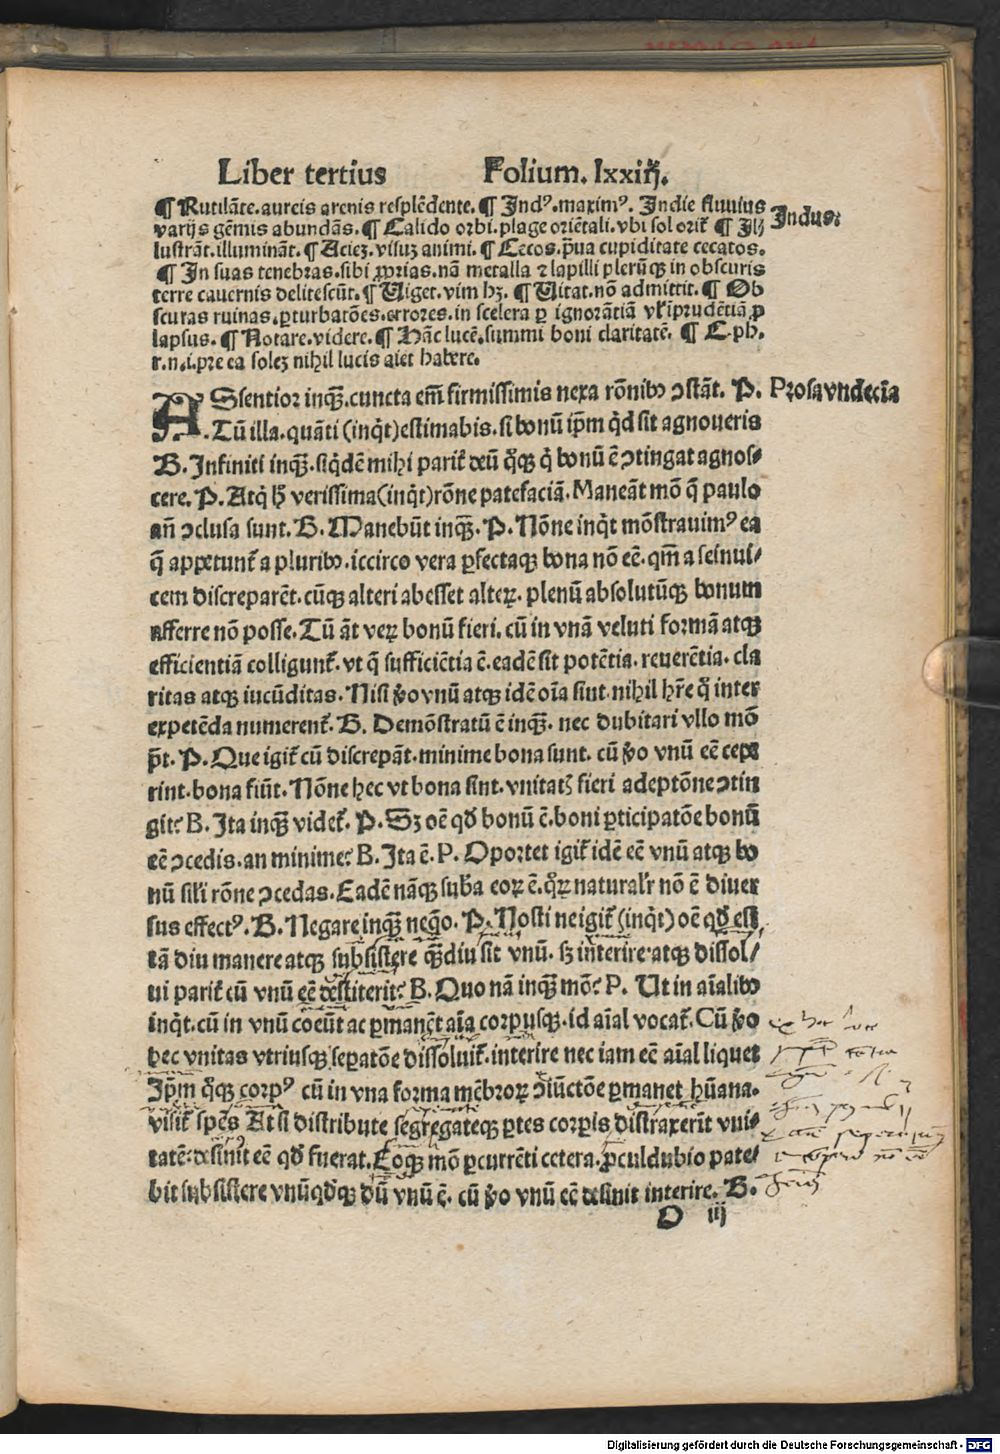 Liber tertius Folium. lxxiij.
¶ Rutilāte. aureis arenis resplēdente. ¶ Indꝰ. maximꝰ. Indie fluuius
Indus:
varijs gēmis abundās. ¶ Calido orbi. plage oriētali. vbi sol orit᷑ ¶ Ill
lustrāt. illumināt. ¶ Aciez. visuz animi. ¶ Cecos. p̄ua cupiditate cecatos.
¶ In suas tenebras. sibi ꝓprias. nā metalla ⁊ lapilli plerūqꝫ in obscuris
terre cauernis delitescūt. ¶ Uiget. vim hꝫ. ¶ Uitat. nō admittit. ¶ Ob
scuras ruinas. ꝑturbatōes. errores. in scelera ꝑ ignorātiā vl᷑ iprudētiā ꝓ
lapsus. ¶ Notare. videre. ¶ Hāc lucē. summi boni claritatē. ¶ E. ph.
r. n. i. pre ea solez nihil lucis aiet habere.
ASsentior inqꝫ̄. cuncta em̄ firmissimis nexa rōnibꝰ ↄstāt. P.
Prosa vndecīa
Tū illa. quāti (inq̇t) estimabis. si bonū ip̄m q̇d sit agnoueris
B. Infiniti inqꝫ̄. siq̇dē mihi parit᷑ deū qͦqꝫ q̇ bonū ē ↄtingat agnos⸗
cere. P. Atq̇ hͦ verissima (inq̇t) rōne patefaciā. Maneāt mō q̄ paulo
an̄ ↄclusa sunt. B. Manebūt inqꝫ̄. P. Nōne inq̇t mōstrauimꝰ ea
q̄ appetunt᷑ a pluribꝰ. iccirco vera ꝑfectaqꝫ bona nō eē. qm̄ a seinui⸗
cem discreparēt. cūqꝫ alteri abesset alteꝝ. plenū absolutūqꝫ bonum
afferre nō posse. Tū āt veꝝ bonū fieri. cū in vnā veluti formā atqꝫ
efficientiā colligunt᷑. vt q̄ sufficiētia ē. eadē sit potētia. reuerētia. cla
ritas atqꝫ iucūditas. Nisi ꝟo vnū atqꝫ idē oīa sint. nihil hr̄e qͦ inter
expetēda numerent᷑. B. Demōstratū ē inqꝫ̄. nec dubitari vllo mō
p̄t. P. Que igit᷑ cū discrepāt. minime bona sunt. cū ꝟo vnū eē cepe
rint. bona fiūt. Nōne hec vt bona sint. vnitatꝭ fieri adeptōne ↄtin
git? B. Ita inqꝫ̄ videt᷑. P. Sꝫ oē qd̄ bonū ē. boni ꝑticipatōe bonū
eē ↄcedis. an minime? B. Ita ē. P. Oportet igit᷑ idē eē vnū atqꝫ bo
nū sil᷑i rōne ↄcedas. Eadē nāqꝫ sub̄a eoꝝ ē. qͦꝝ natural᷑r nō ē diuer
sus effectꝰ. B. Negare inqꝫ̄ neq̄o. P. Nosti ne igit᷑ (inq̇t) oē qd̄ est
tā diu manere atqꝫ subsistere qꝫ̄diu sit vnū. sꝫ interire atqꝫ dissol⸗
ui parit᷑ cū vnū eē destiterit? B. Quo nā inqꝫ̄ mō? P. Ut in aīalibꝰ
inq̇t. cū in vnū coeūt ac ꝑmanēt aīa corpusqꝫ. id aīal vocat᷑. Cū ꝟo
hec vnitas vtriusqꝫ seꝑatōe dissoluit᷑. interire nec iam eē aīal liquet
Ip̄m qͦqꝫ corpꝰ cū in vna forma mēbroꝝ ↄiūctōe ꝑmanet hūana.
visit᷑ spēs At si distribute segregateqꝫ ꝑtes corꝑis distraxerīt vni⸗
tatē. desinit eē qd̄ fuerat. Eoqꝫ mō ꝑcurrēti cetera. ꝓculdubio pate⸗
bit subsistere vnūqd̄qꝫ dū vnū ē. cū ꝟo vnū eē desinit interire. B.
O iij
Digitalisierung gefördert durch die Deutsche Forschungsgemeinschaft - DFG